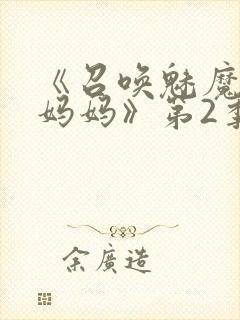 《召唤魅魔
妈妈》第2季
余廣造